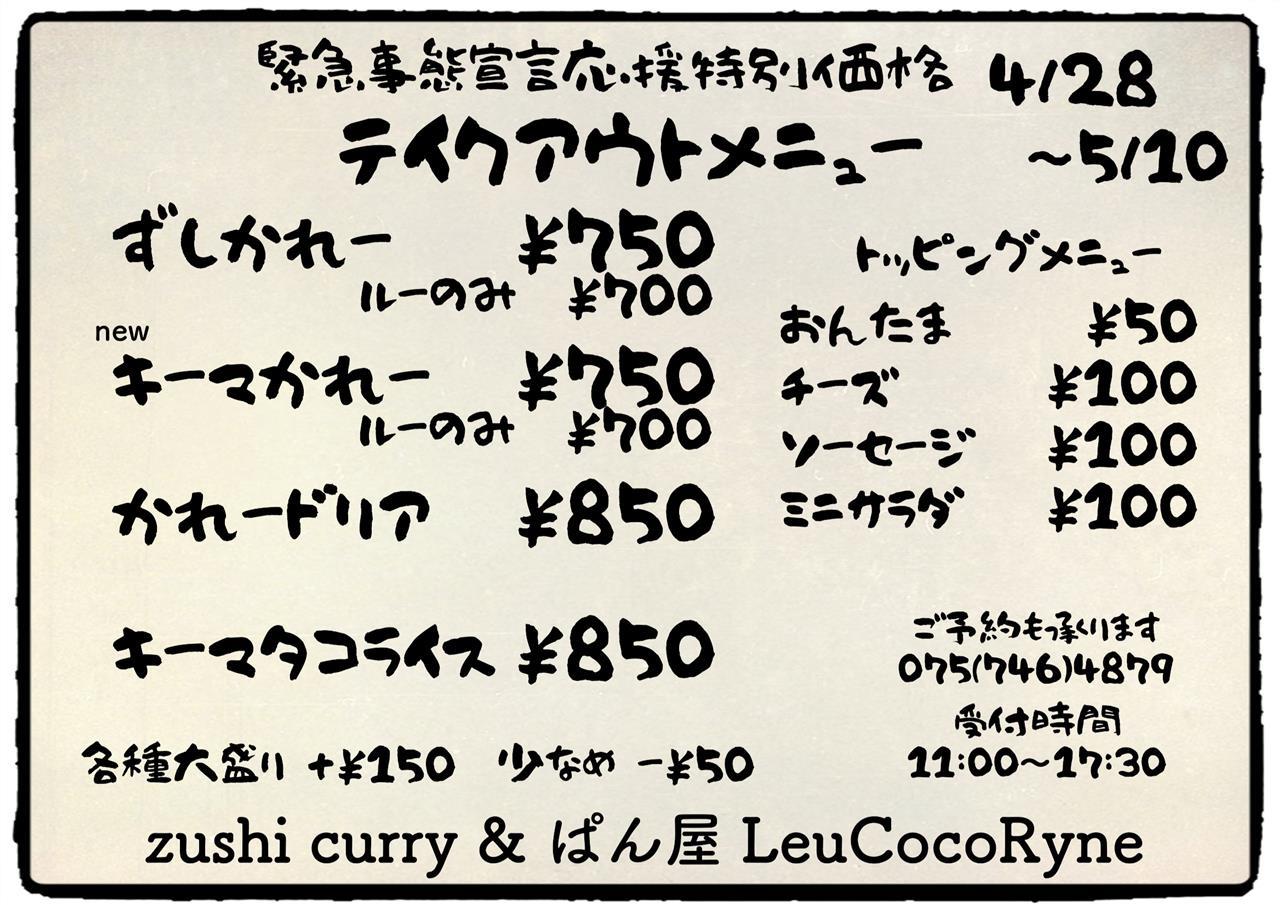 緊急事態宣言応援特別価格 4/28
テイクアウトメニュー ~5/10
ずしかれー ¥750
ルーのみ ¥700
new
キーマかれー ¥750
ルーのみ ¥700
かれードリア ¥850
キーマタコライス ¥850
各種大盛り +¥150 少なめ -¥50
トッピングメニュー
おんたま ¥50
チーズ ¥100
ソーセージ ¥100
ミニサラダ ¥100
ご予約も承ります
075(746)4879
受付時間
11:00~17:30
zushi curry & ぱん屋 LeuCocoRyne